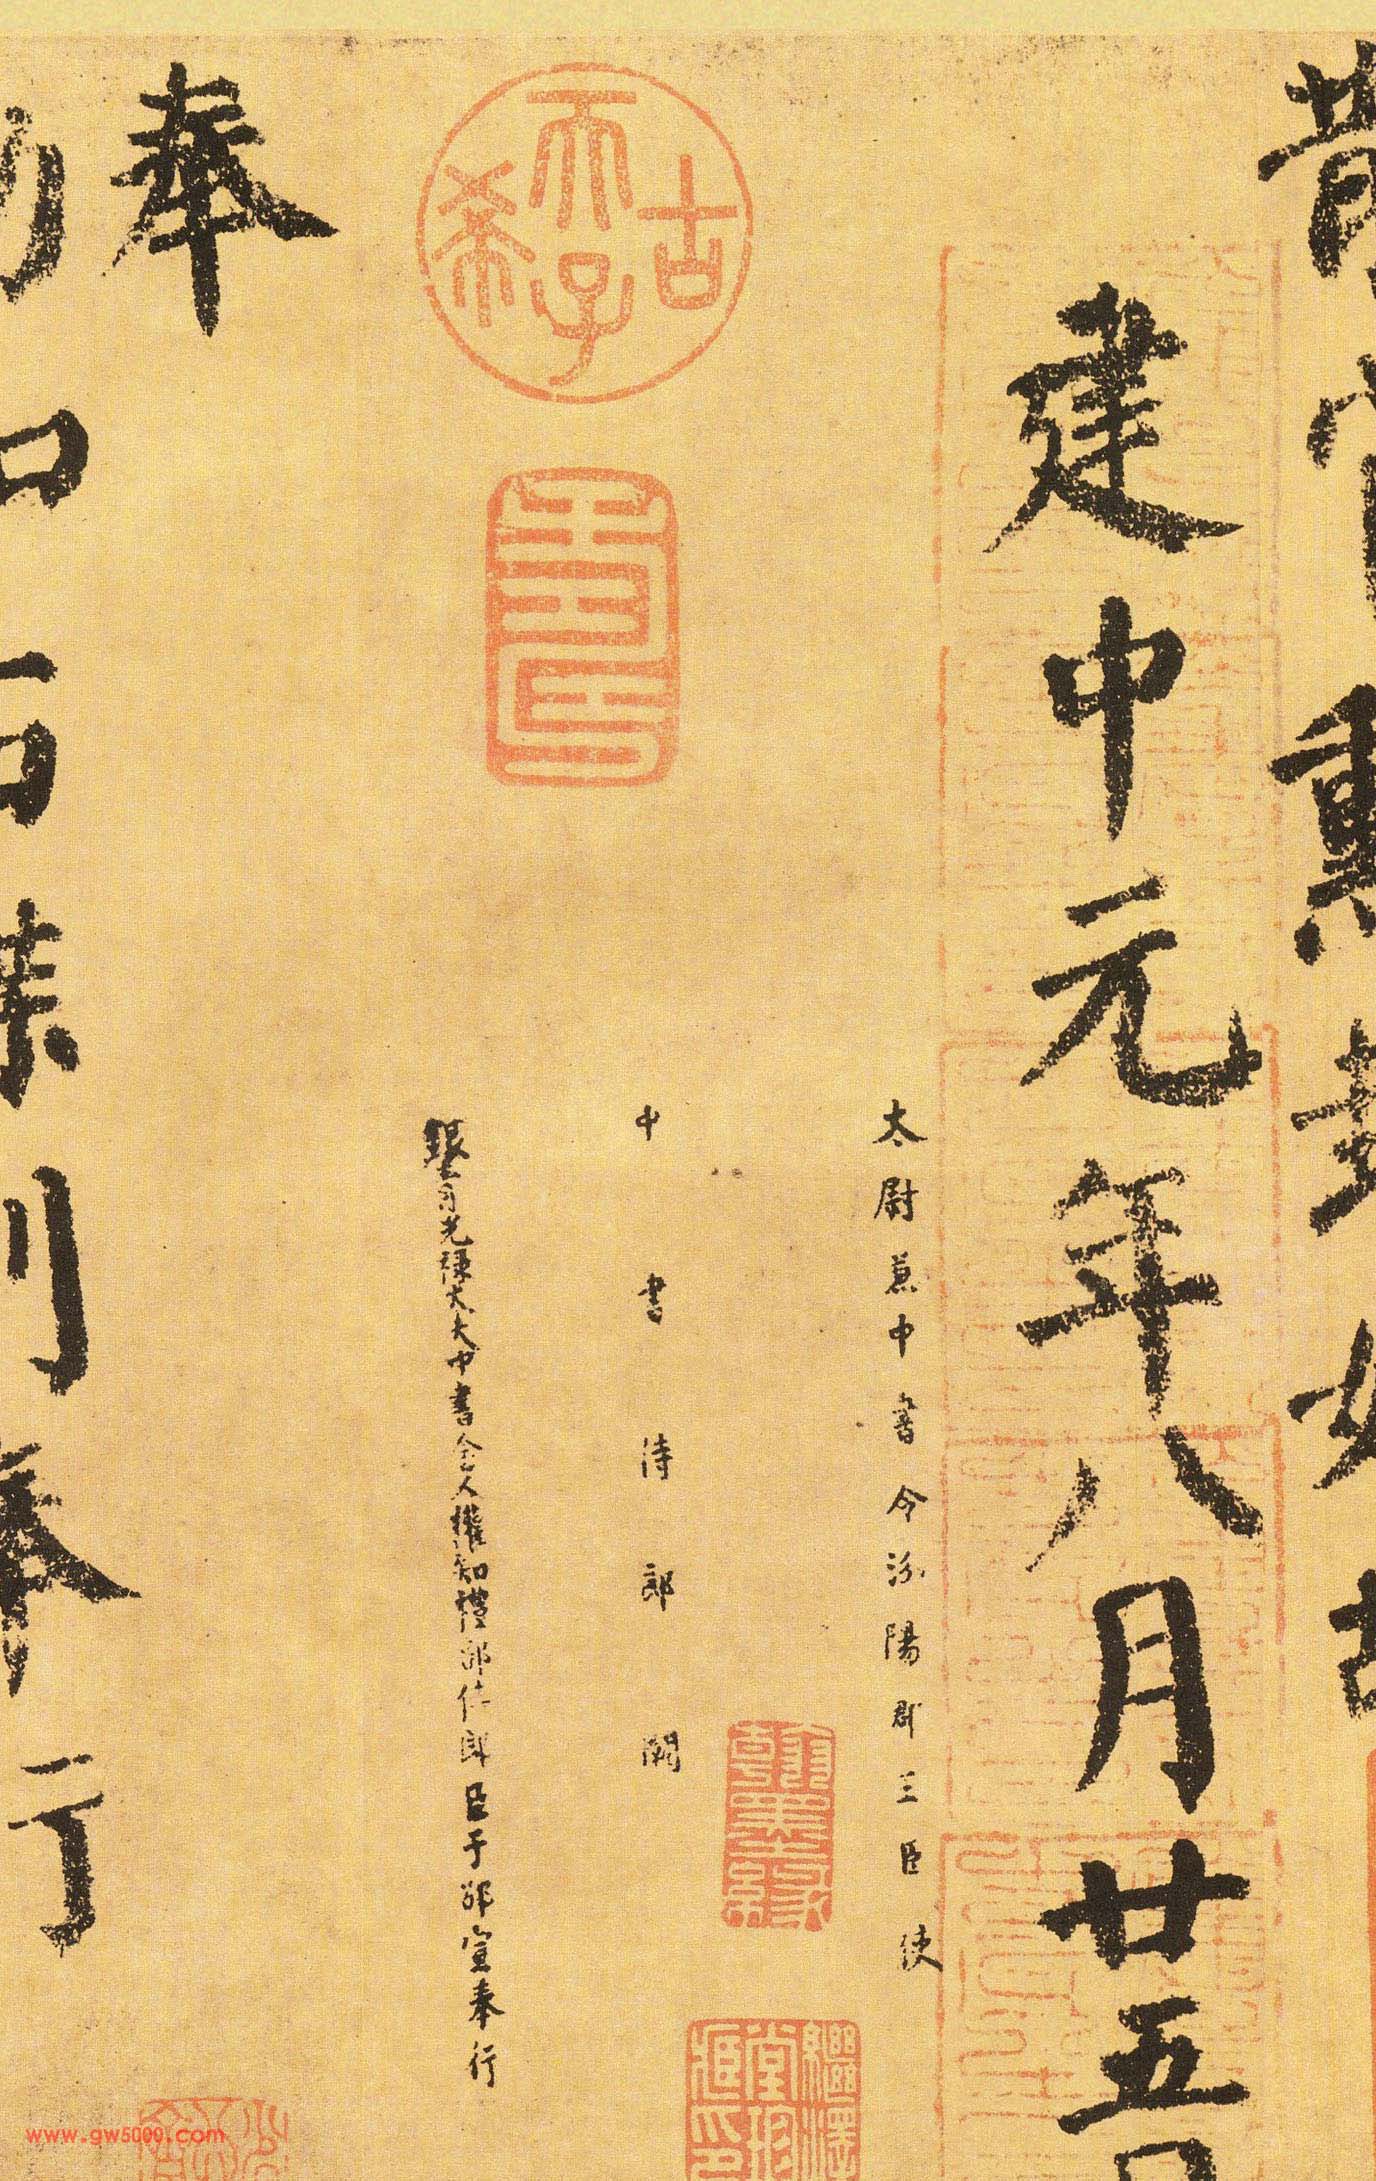 散官勲封如故
建中元年八月廿五日
太尉兼中書令汾陽郡王臣使
中書侍郎闕
銀青光祿大夫中書舍人權知禮部侍郎臣于邵宣奉行
古希天子
奉
勑如右牒到奉行
www.gw5000.com